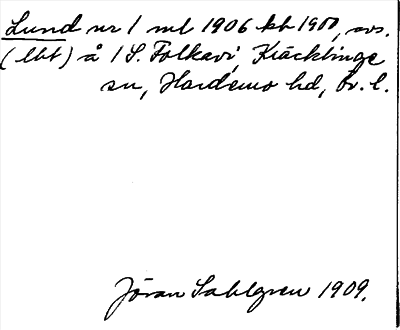 Lund nr 1 ml 1906 kb 1900, svs.
(lbt) å 1 S. Folkavi, Kräcklinge
sn, Hardemo hd, Ör. l.
Jöran Sahlgren 1909.